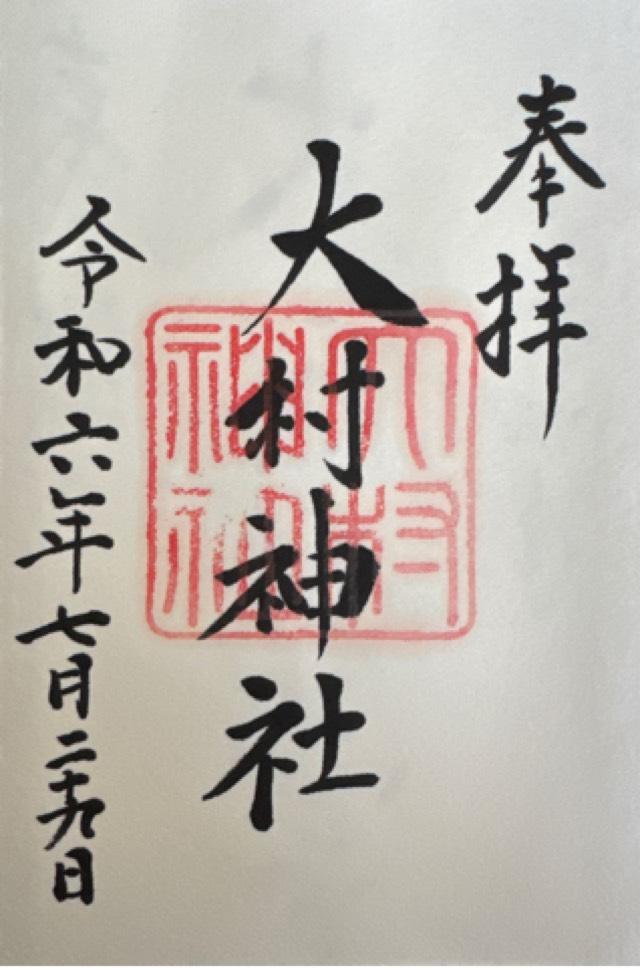 奉拝
大村神社
大村神社
令和六年七月二十九日